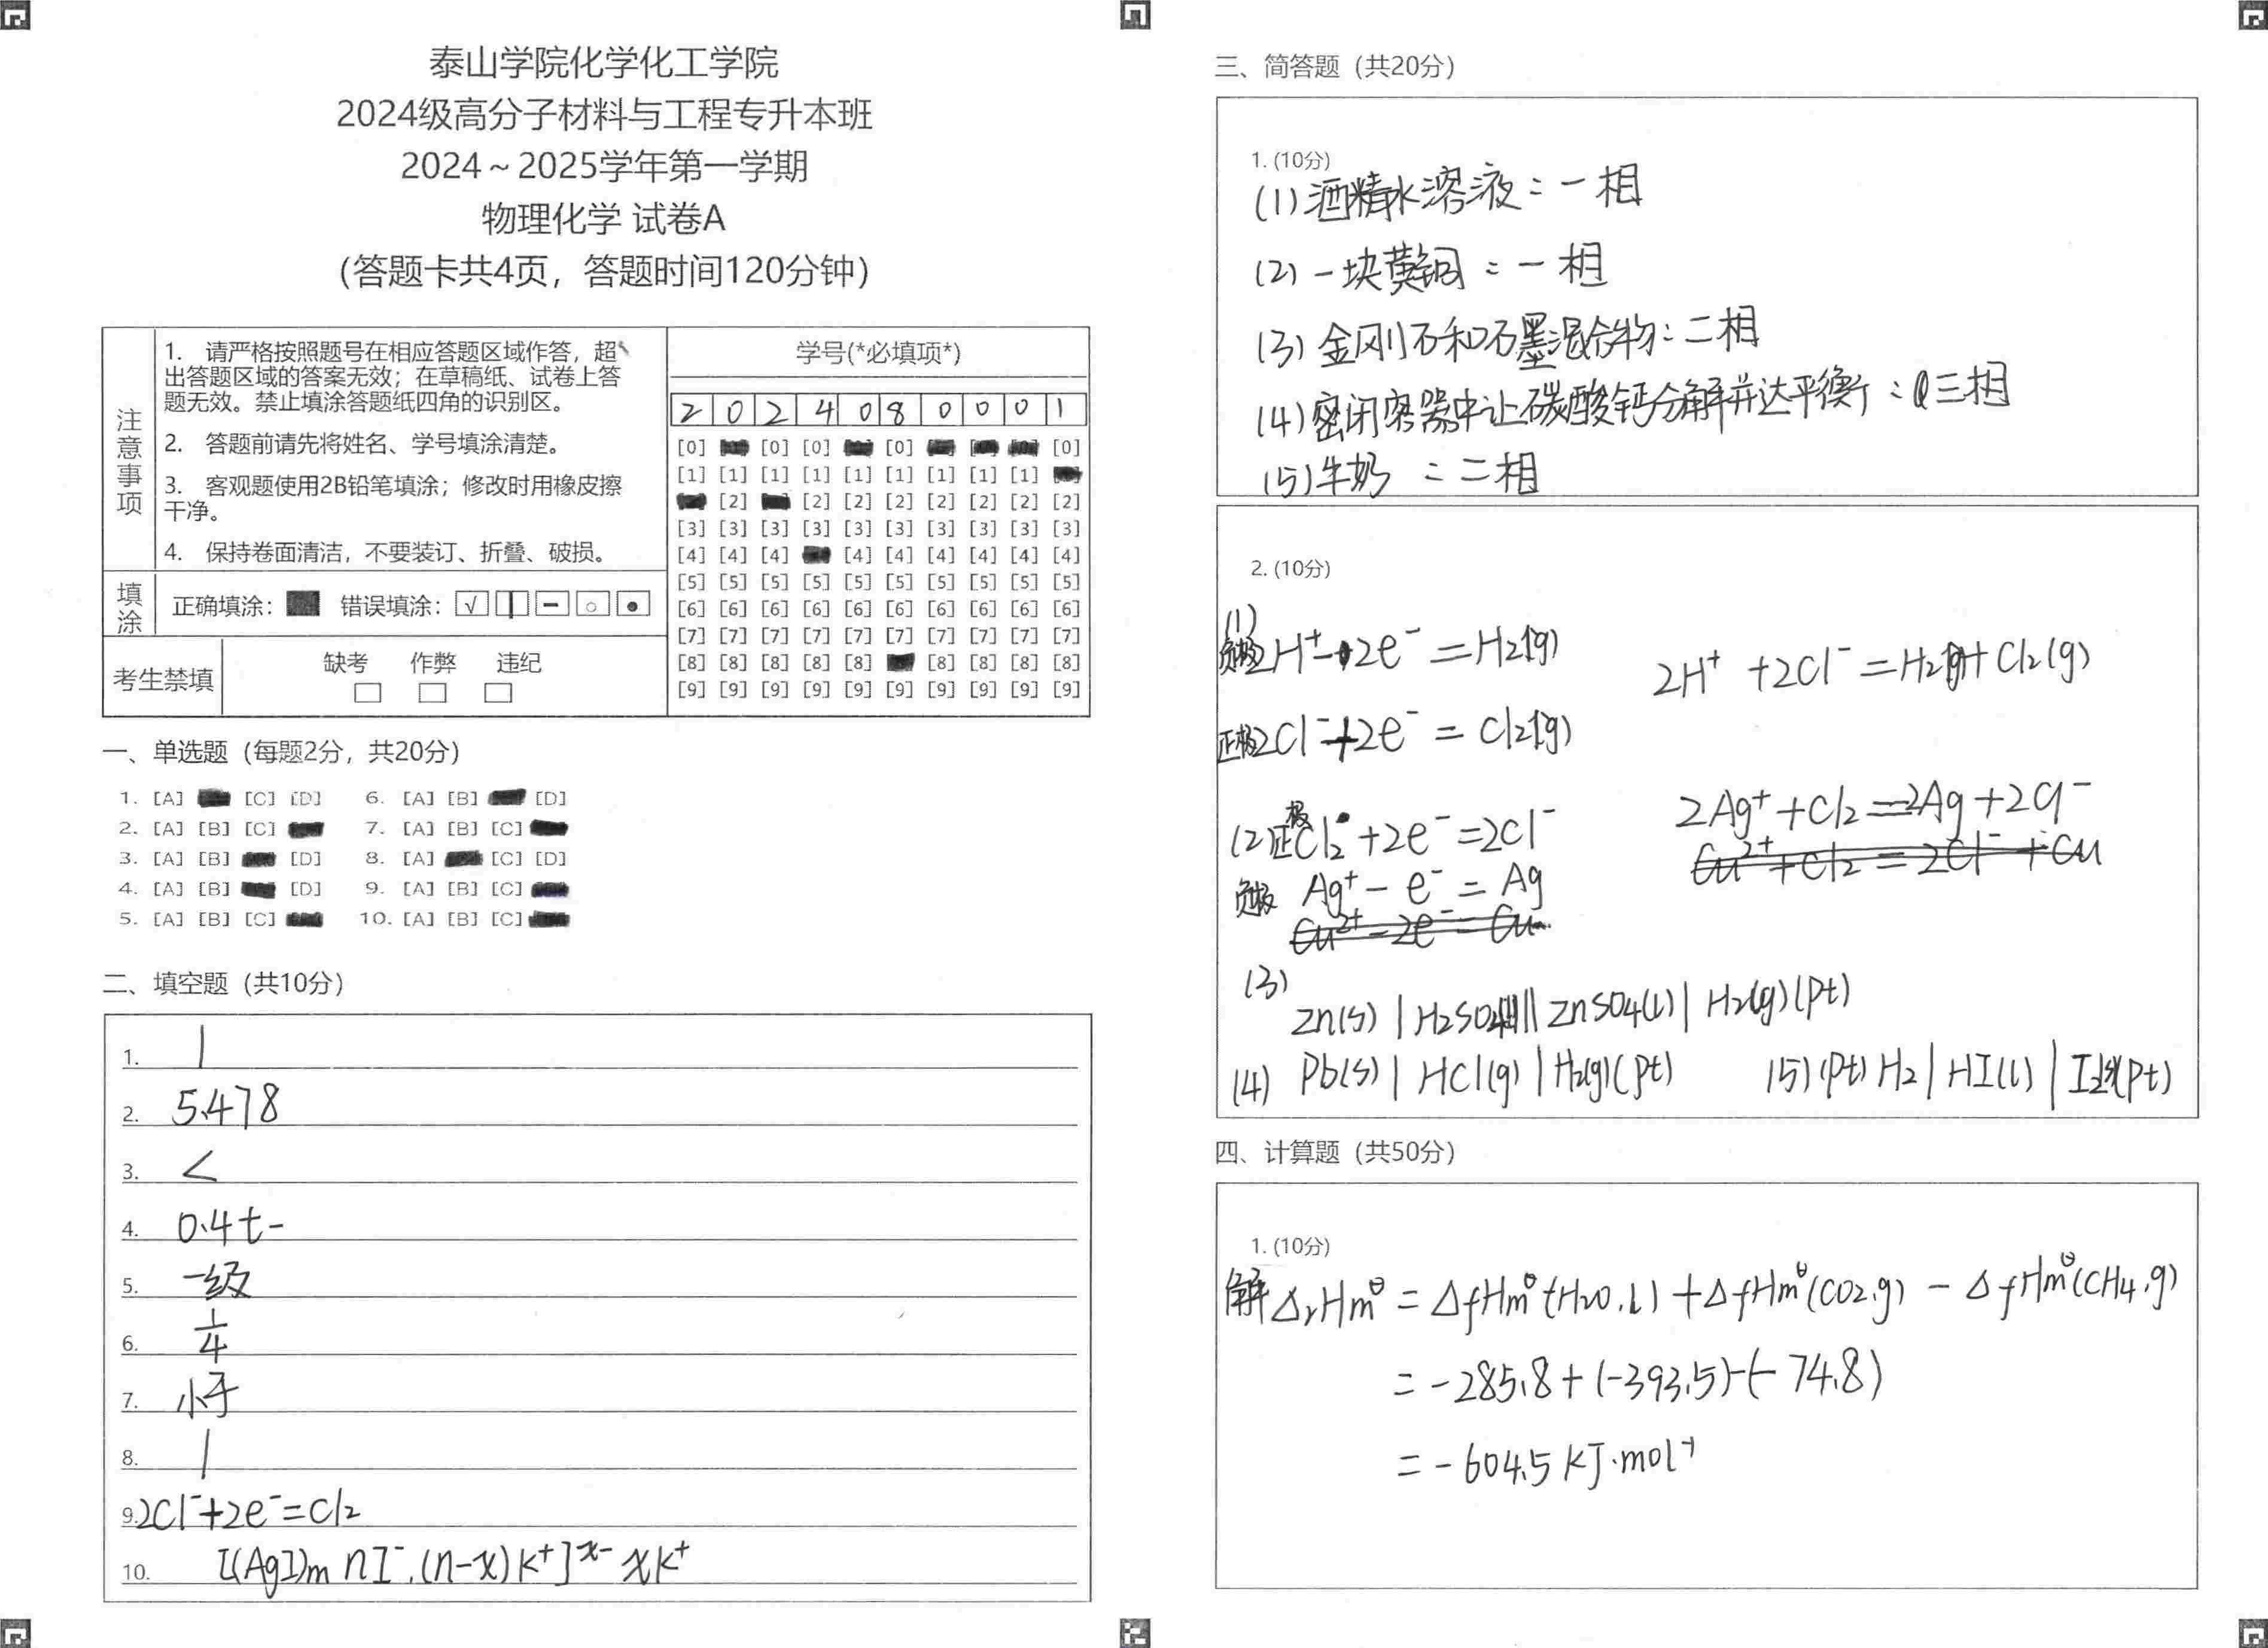 泰山学院化学化工学院
2024级高分子材料与工程专升本班
2024～2025学年第一学期
物理化学 试卷A
（答题卡共4页，答题时间120分钟）
注意事项
1. 请严格按照题号在相应答题区域作答，超
出答题区域的答案无效；在草稿纸、试卷上答
题无效。禁止填涂答题纸四角的识别区。
2. 答题前请先将姓名、学号填涂清楚。
3. 客观题使用2B铅笔填涂；修改时用橡皮擦
干净。
4. 保持卷面清洁，不要装订、折叠、破损。
填涂 正确填涂： 错误填涂：
考生禁填 缺考 作弊 违纪
学号(*必填项*)
2 0 2 4 0 8 0 0 0 1
[0] [0] [0] [0] [0]
[1] [1] [1] [1] [1] [1] [1] [1] [1]
[2] [2] [2] [2] [2] [2] [2] [2]
[3] [3] [3] [3] [3] [3] [3] [3] [3] [3]
[4] [4] [4] [4] [4] [4] [4] [4] [4]
[5] [5] [5] [5] [5] [5] [5] [5] [5] [5]
[6] [6] [6] [6] [6] [6] [6] [6] [6] [6]
[7] [7] [7] [7] [7] [7] [7] [7] [7] [7]
[8] [8] [8] [8] [8] [8] [8] [8] [8]
[9] [9] [9] [9] [9] [9] [9] [9] [9] [9]
一、单选题（每题2分，共20分）
1. [A] [C] [D] 6. [A] [B] [D]
2. [A] [B] [C] 7. [A] [B] [C]
3. [A] [B] [D] 8. [A] [C] [D]
4. [A] [B] [D] 9. [A] [B] [C]
5. [A] [B] [C] 10. [A] [B] [C]
二、填空题（共10分）
1. 1
2. 5.478
3. <
4. 0.4t-
5. 一级
6. 1/4
7. 小于
8. 1
9. 2Cl⁻+2e⁻=Cl₂
10. [(AgI)m nI⁻.(n-x)K⁺]ˣ⁻ xK⁺
三、简答题（共20分）
1. (10分)
(1) 酒精水溶液：一相
(2) 一块黄铜：一相
(3) 金刚石和石墨混合物：二相
(4) 密闭容器中让碳酸钙分解并达平衡：三相
(5) 牛奶：二相
2. (10分)
(1)
负极2H⁺-2e⁻=H₂(g) 2H⁺+2Cl⁻=H₂(g)+Cl₂(g)
正极2Cl⁻+2e⁻=Cl₂(g)
(2)正极Cl₂+2e⁻=2Cl⁻ 2Ag⁺+Cl₂=2Ag+2Cl⁻
负极 Ag⁺-e⁻=Ag Cu²⁺+Cl₂=2Cl⁻+Cu
Cu²⁺-2e⁻=Cu
(3)
Zn(s)|H₂SO₄||ZnSO₄(l)|H₂(g)(pt)
(4) Pb(s)|HCl(g)|H₂(g)(pt) (5)(pt)H₂|HI(l)|I₂(pt)
四、计算题（共50分）
1. (10分)
解 ΔrHmᶿ=ΔfHmᶿ(H₂O.l)+ΔfHmᶿ(CO₂.g)-ΔfHmᶿ(CH₄.g)
=-285.8+(-393.5)-(-74.8)
=-604.5 KJ·mol⁻¹